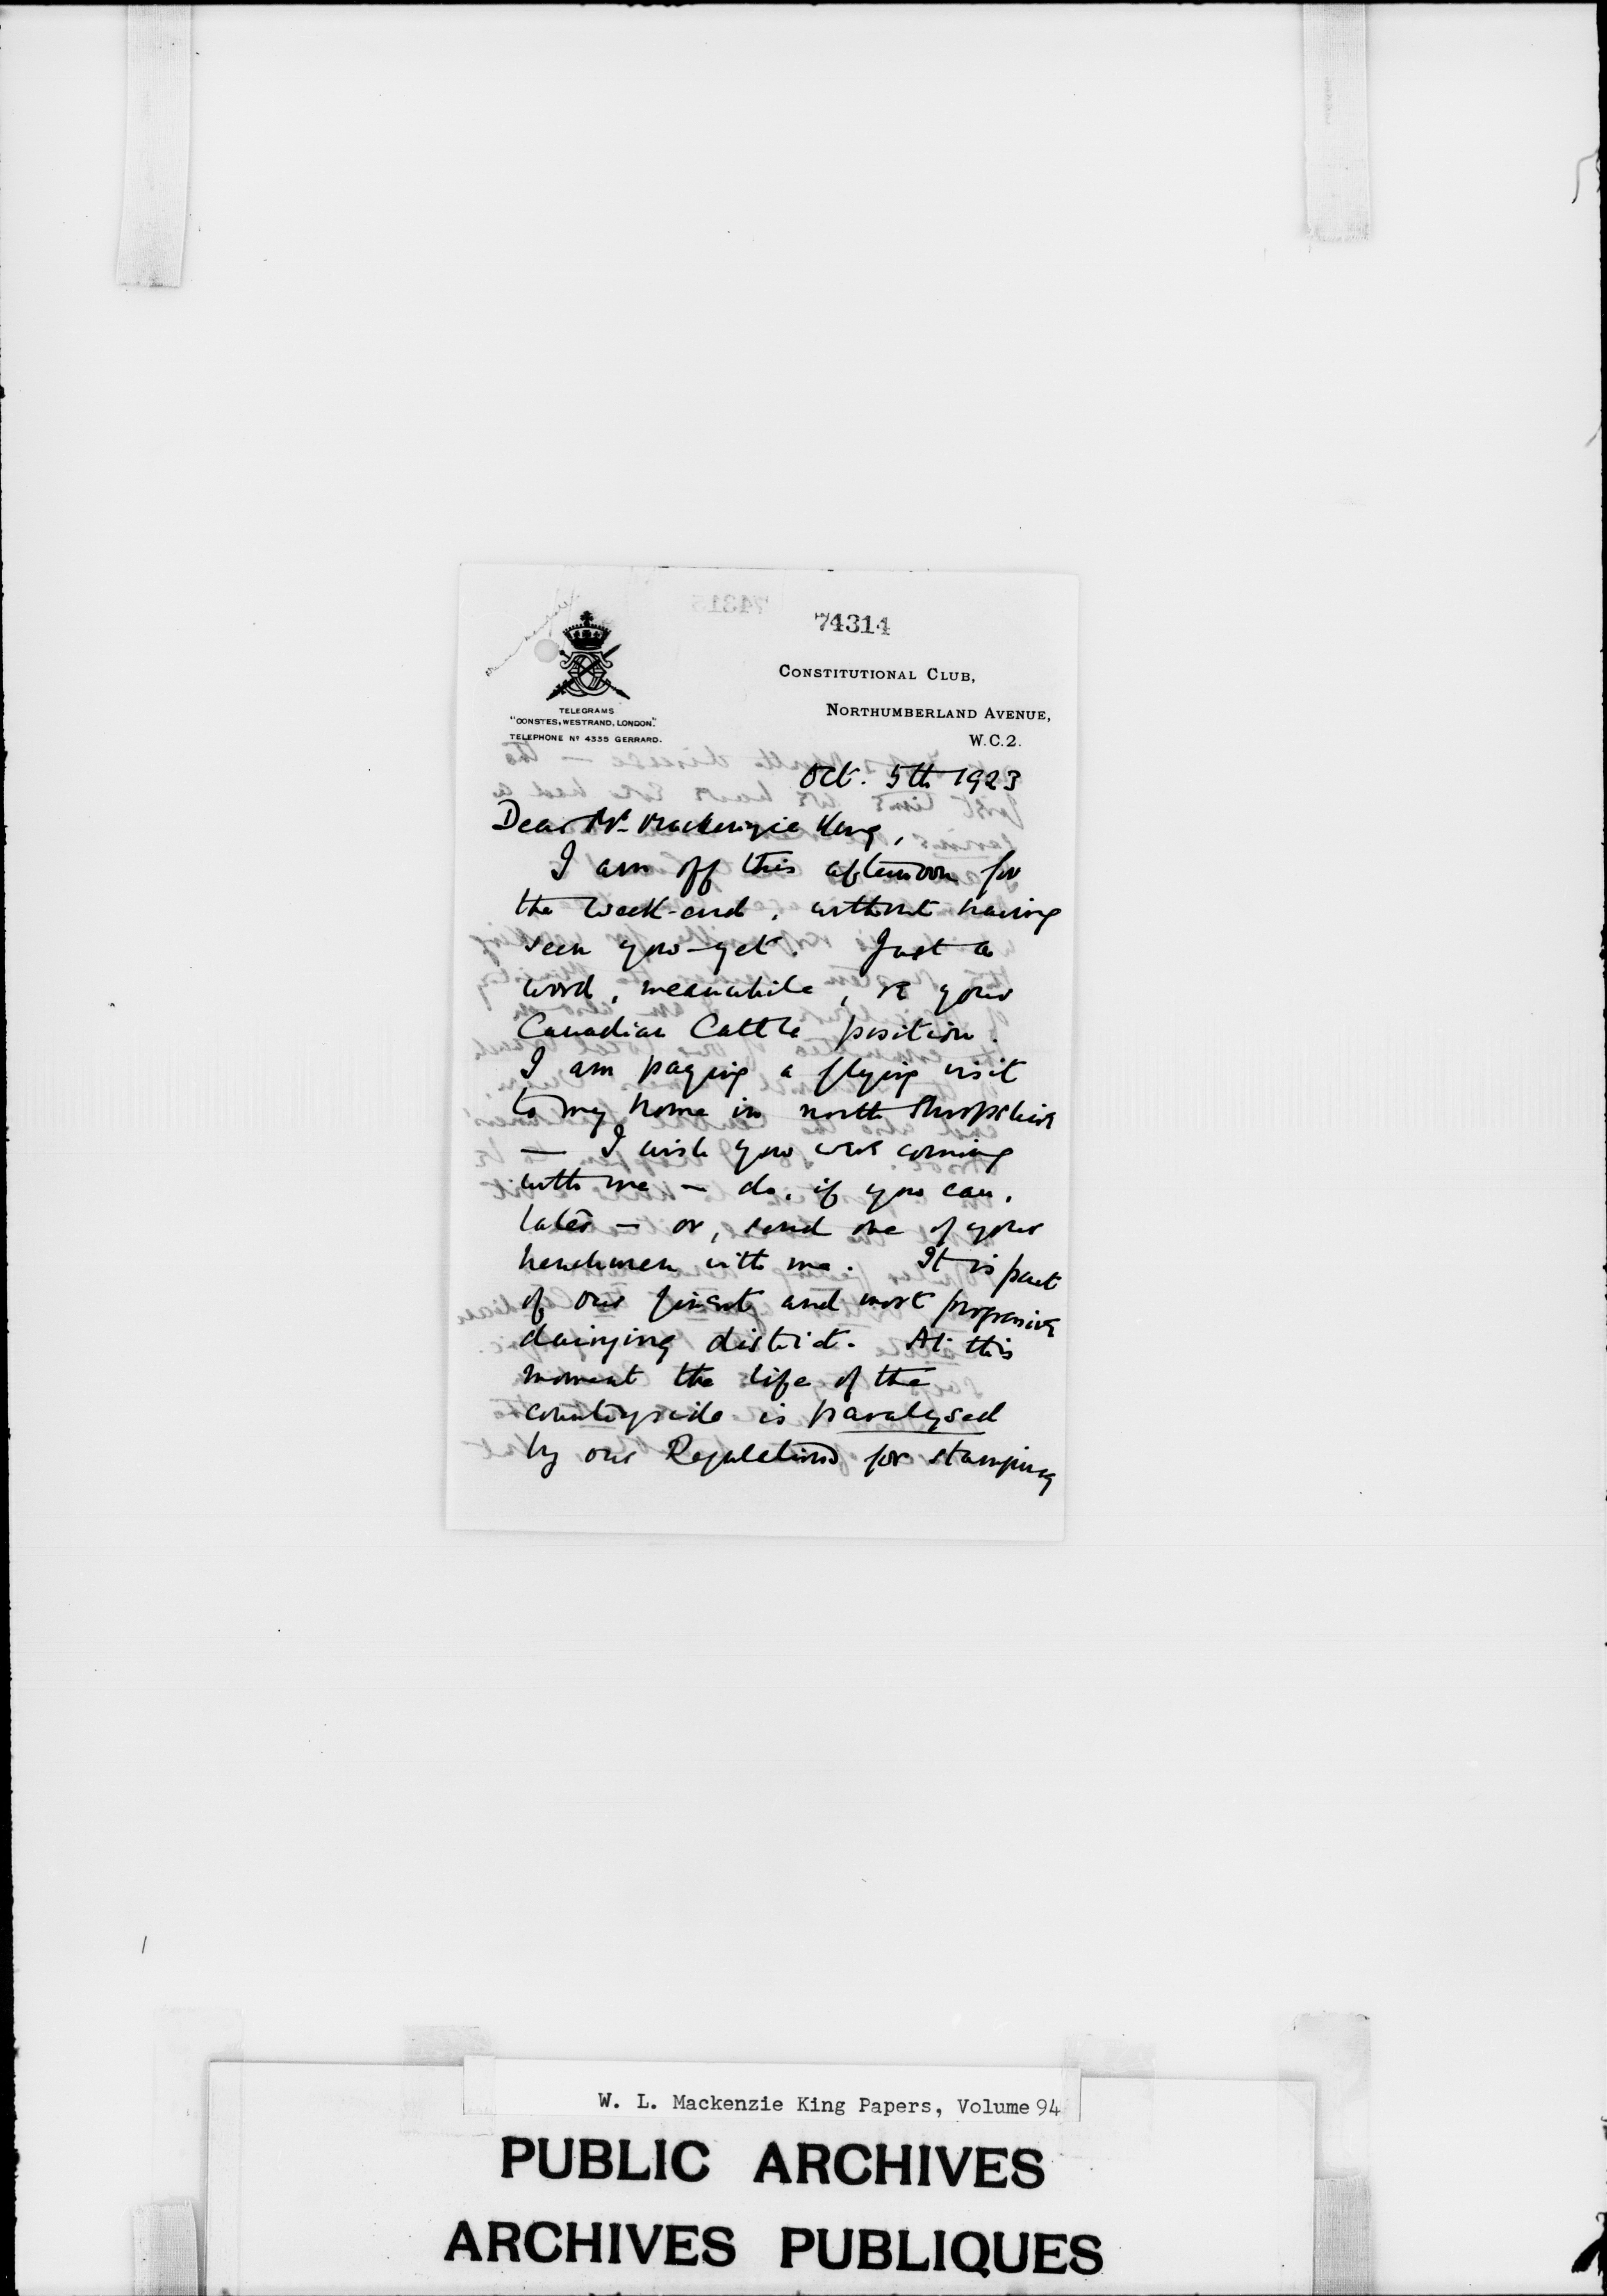 74314
CONSTITUTIONAL CLUB,
NORTHUMBERLAND AVENUE,
W.C.2.
TELEGRAMS
"CONSTES, WESTRAND, LONDON."
TELEPHONE Nº 4335 GERRARD.
Oct. 5th 1923
Dear Mr. Mackenzie King,
I am off this afternoon for
the week-end, without having
seen you yet. Just a
word, meanwhile, re your
Canadian Cattle position.
I am paying a flying visit
to my home in north Shropshire
— I wish you were coming
with me — do, if you can,
later — or, send one of your
henchmen with me. It is part
of our finest and most progressive
dairying district. At this
moment the life of the
countryside is paralysed
by our Regulations for stamping
W. L. Mackenzie King Papers, Volume 94
PUBLIC ARCHIVES
ARCHIVES PUBLIQUES